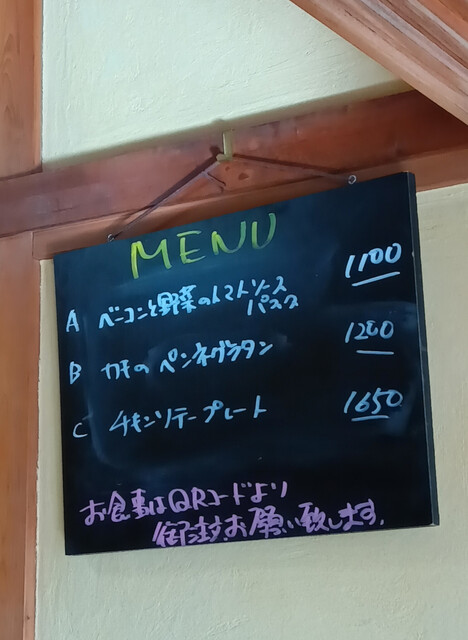 MENU
A ベーコンと野菜のトマトソース 1100
パスタ
B カキのペンネグラタン 1200
C チキンソテープレート 1650
お食事はQRコードより
御注文お願い致します。